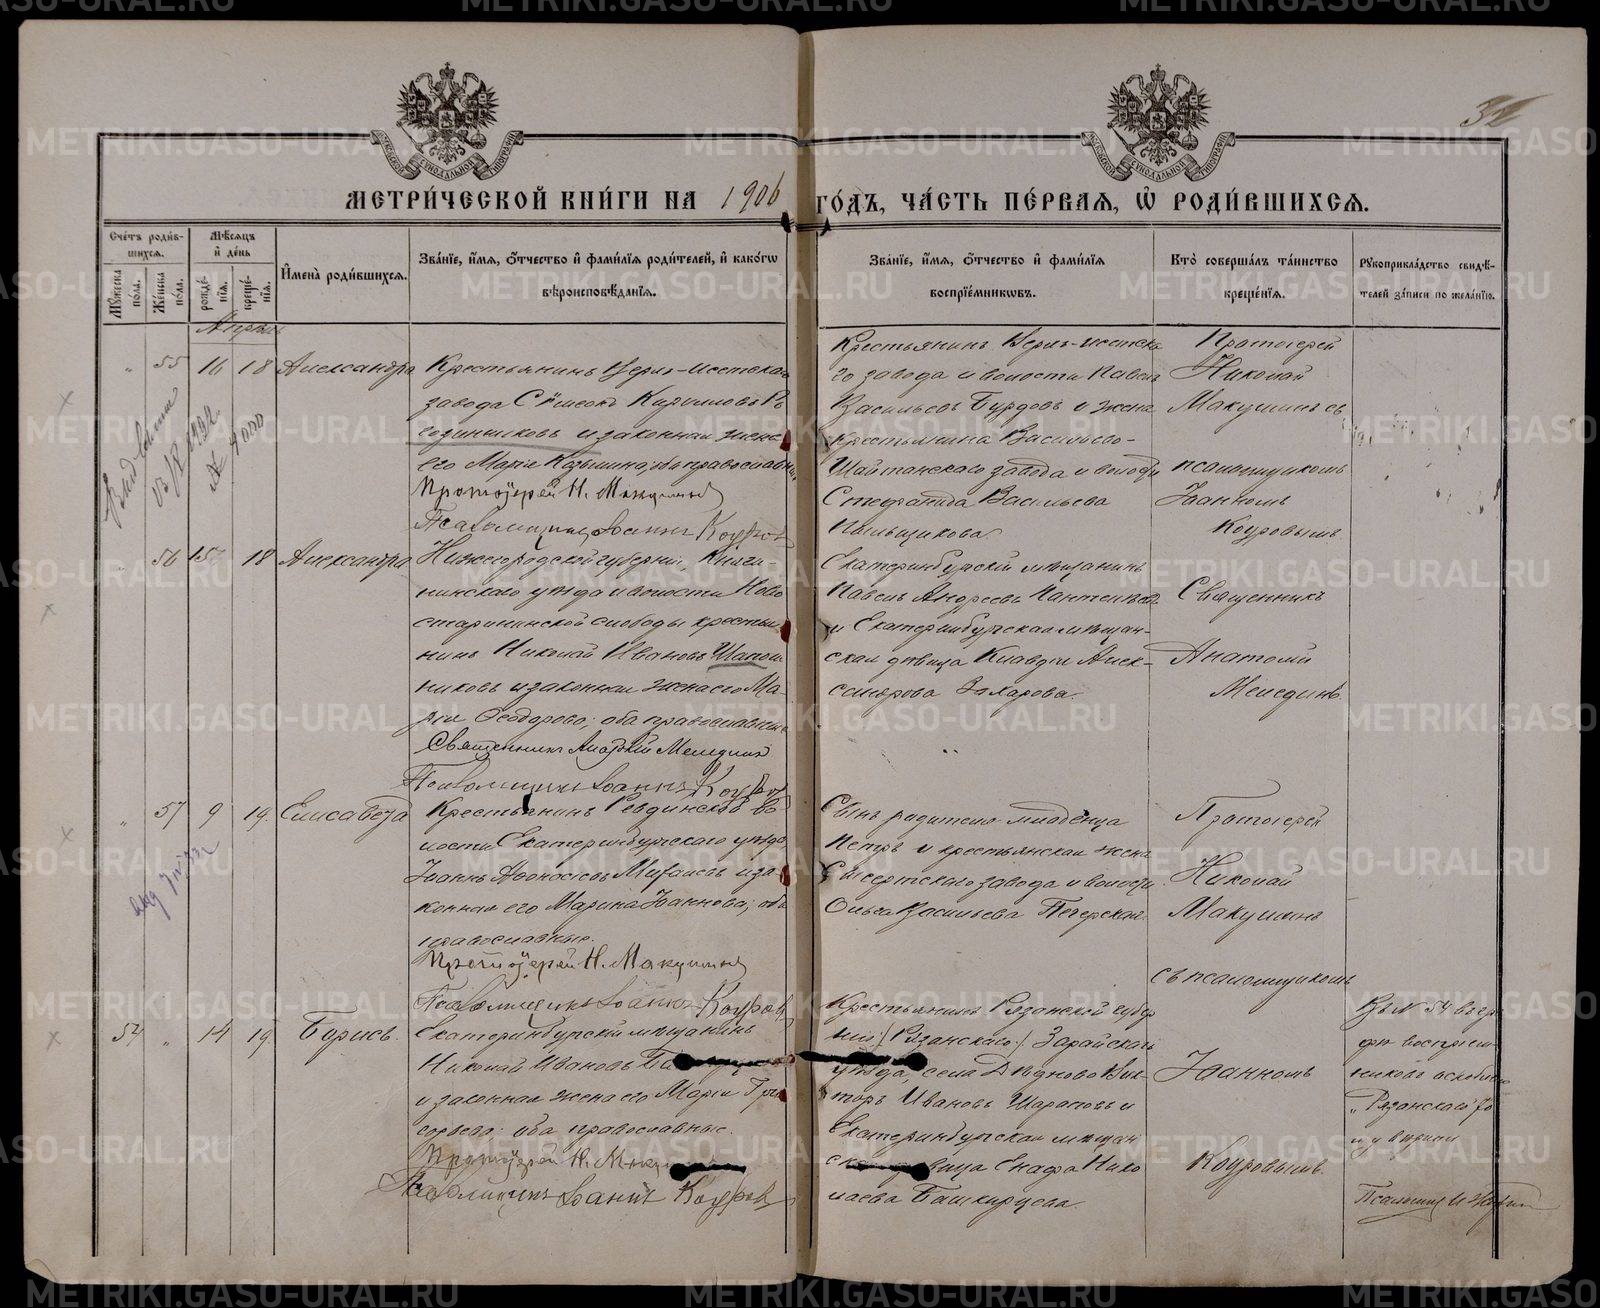 32
МЕТРИ́ЧЕСКОЙ КНИ́ГИ НА 1906 ГО́ДЪ, ЧА́СТЬ ПЕ́РВАЯ, Ѡ҆ РОДИ́ВШИХСЯ.
Сче́тъ роди́вшихся.
Мꙋ́жеска по́ла.
Же́нска по́ла.
Мѣ́сяцъ и҆ де́нь
рожде́нїя.
креще́нїя.
И҆мена̀ роди́вшихся.
Зва́нїе, и҆́мя, ѻ҆́тчество и҆ фами́лїя роди́телей, и҆ како́гѡ
вѣроисповѣ́данїя.
Зва́нїе, и҆́мя, ѻ҆́тчество и҆ фами́лїя
воспрїе́мникѡвъ.
Кто̀ соверша́лъ та́инство
креще́нїя.
Рꙋкоприкла́дство свидѣ́-
телей за́писи по жела́нїю.
Апрель
" 55 16 18 Александра
Крестьянинъ Верхъ-Исетскаго
завода Сѵмеонъ Кирилловъ
и законная жена
его Марія Козьмина; оба православные
Протоіерей Н. Макушинъ
Псаломщикъ Іоаннъ Коуровъ
Крестьянинъ Верхъ-Исетска
го завода и волости Павелъ
Васильевъ Бурдовъ и жена
крестьянина Васильево-
Шайтанскаго завода и волости
Стефанида Васильева
Пильщикова.
Протоіерей
Николай
Макушинъ съ
псаломщикомъ
Іоанномъ
Коуровымъ
56 15 18 Александра
Нижегородской губерніи, Княги-
нинскаго уѣзда и волости Ново
старининской слободы крестья-
нинъ Николай Ивановъ Шапош
никовъ и законная жена его Ма-
рія Ѳеодорова; оба православные
Священникъ Анатолій Мелединъ
Псаломщикъ Іоаннъ Коуровъ
Екатеринбургскій мѣщанинъ
Павелъ Андреевъ Пантелѣевъ
и Екатеринбургская мѣщан-
ская дѣвица Клавдія Алек-
сандрова Захарова.
Священникъ
Анатолій
Мелединъ.
" 57 9 19 Елисавета
Крестьянинъ Ревдинской во
лости Екатеринбургскаго уѣзда
Іоаннъ Аѳонасіевъ и за-
конная его Марина Іоаннова; оба
православные.
Протоіерей Н. Макушинъ
Псаломщикъ Іоаннъ Коуровъ
Сынъ родителей младенца
Петръ и крестьянская жена
Сысертскаго завода и волости
Ольга Васильева Печерская.
Протоіерей
Николай
Макушинъ
съ псаломщикомъ
Іоанномъ
Коуровымъ
54 " 14 19 Борисъ.
Екатеринбургскій мѣщанинъ
Николай Ивановъ
и законная жена его Марія Гри
горьева: оба православные.
Протоіерей Н. Макушинъ
Псаломщикъ Іоаннъ Коуровъ
Крестьянинъ Рязанской губер
ніи (Рязанскаго) Зарайскаго
уѣзда, села Дѣдново Вик-
торъ Ивановъ Шараповъ и
Екатеринбургская мѣщан
ская дѣвица Нико
лаева Башкирцева.
Въ № 54 въ гра
фѣ воспріем-
никовъ
"Рязанскаго"
Псаломщ.
METRIKI.GASO-URAL.RU